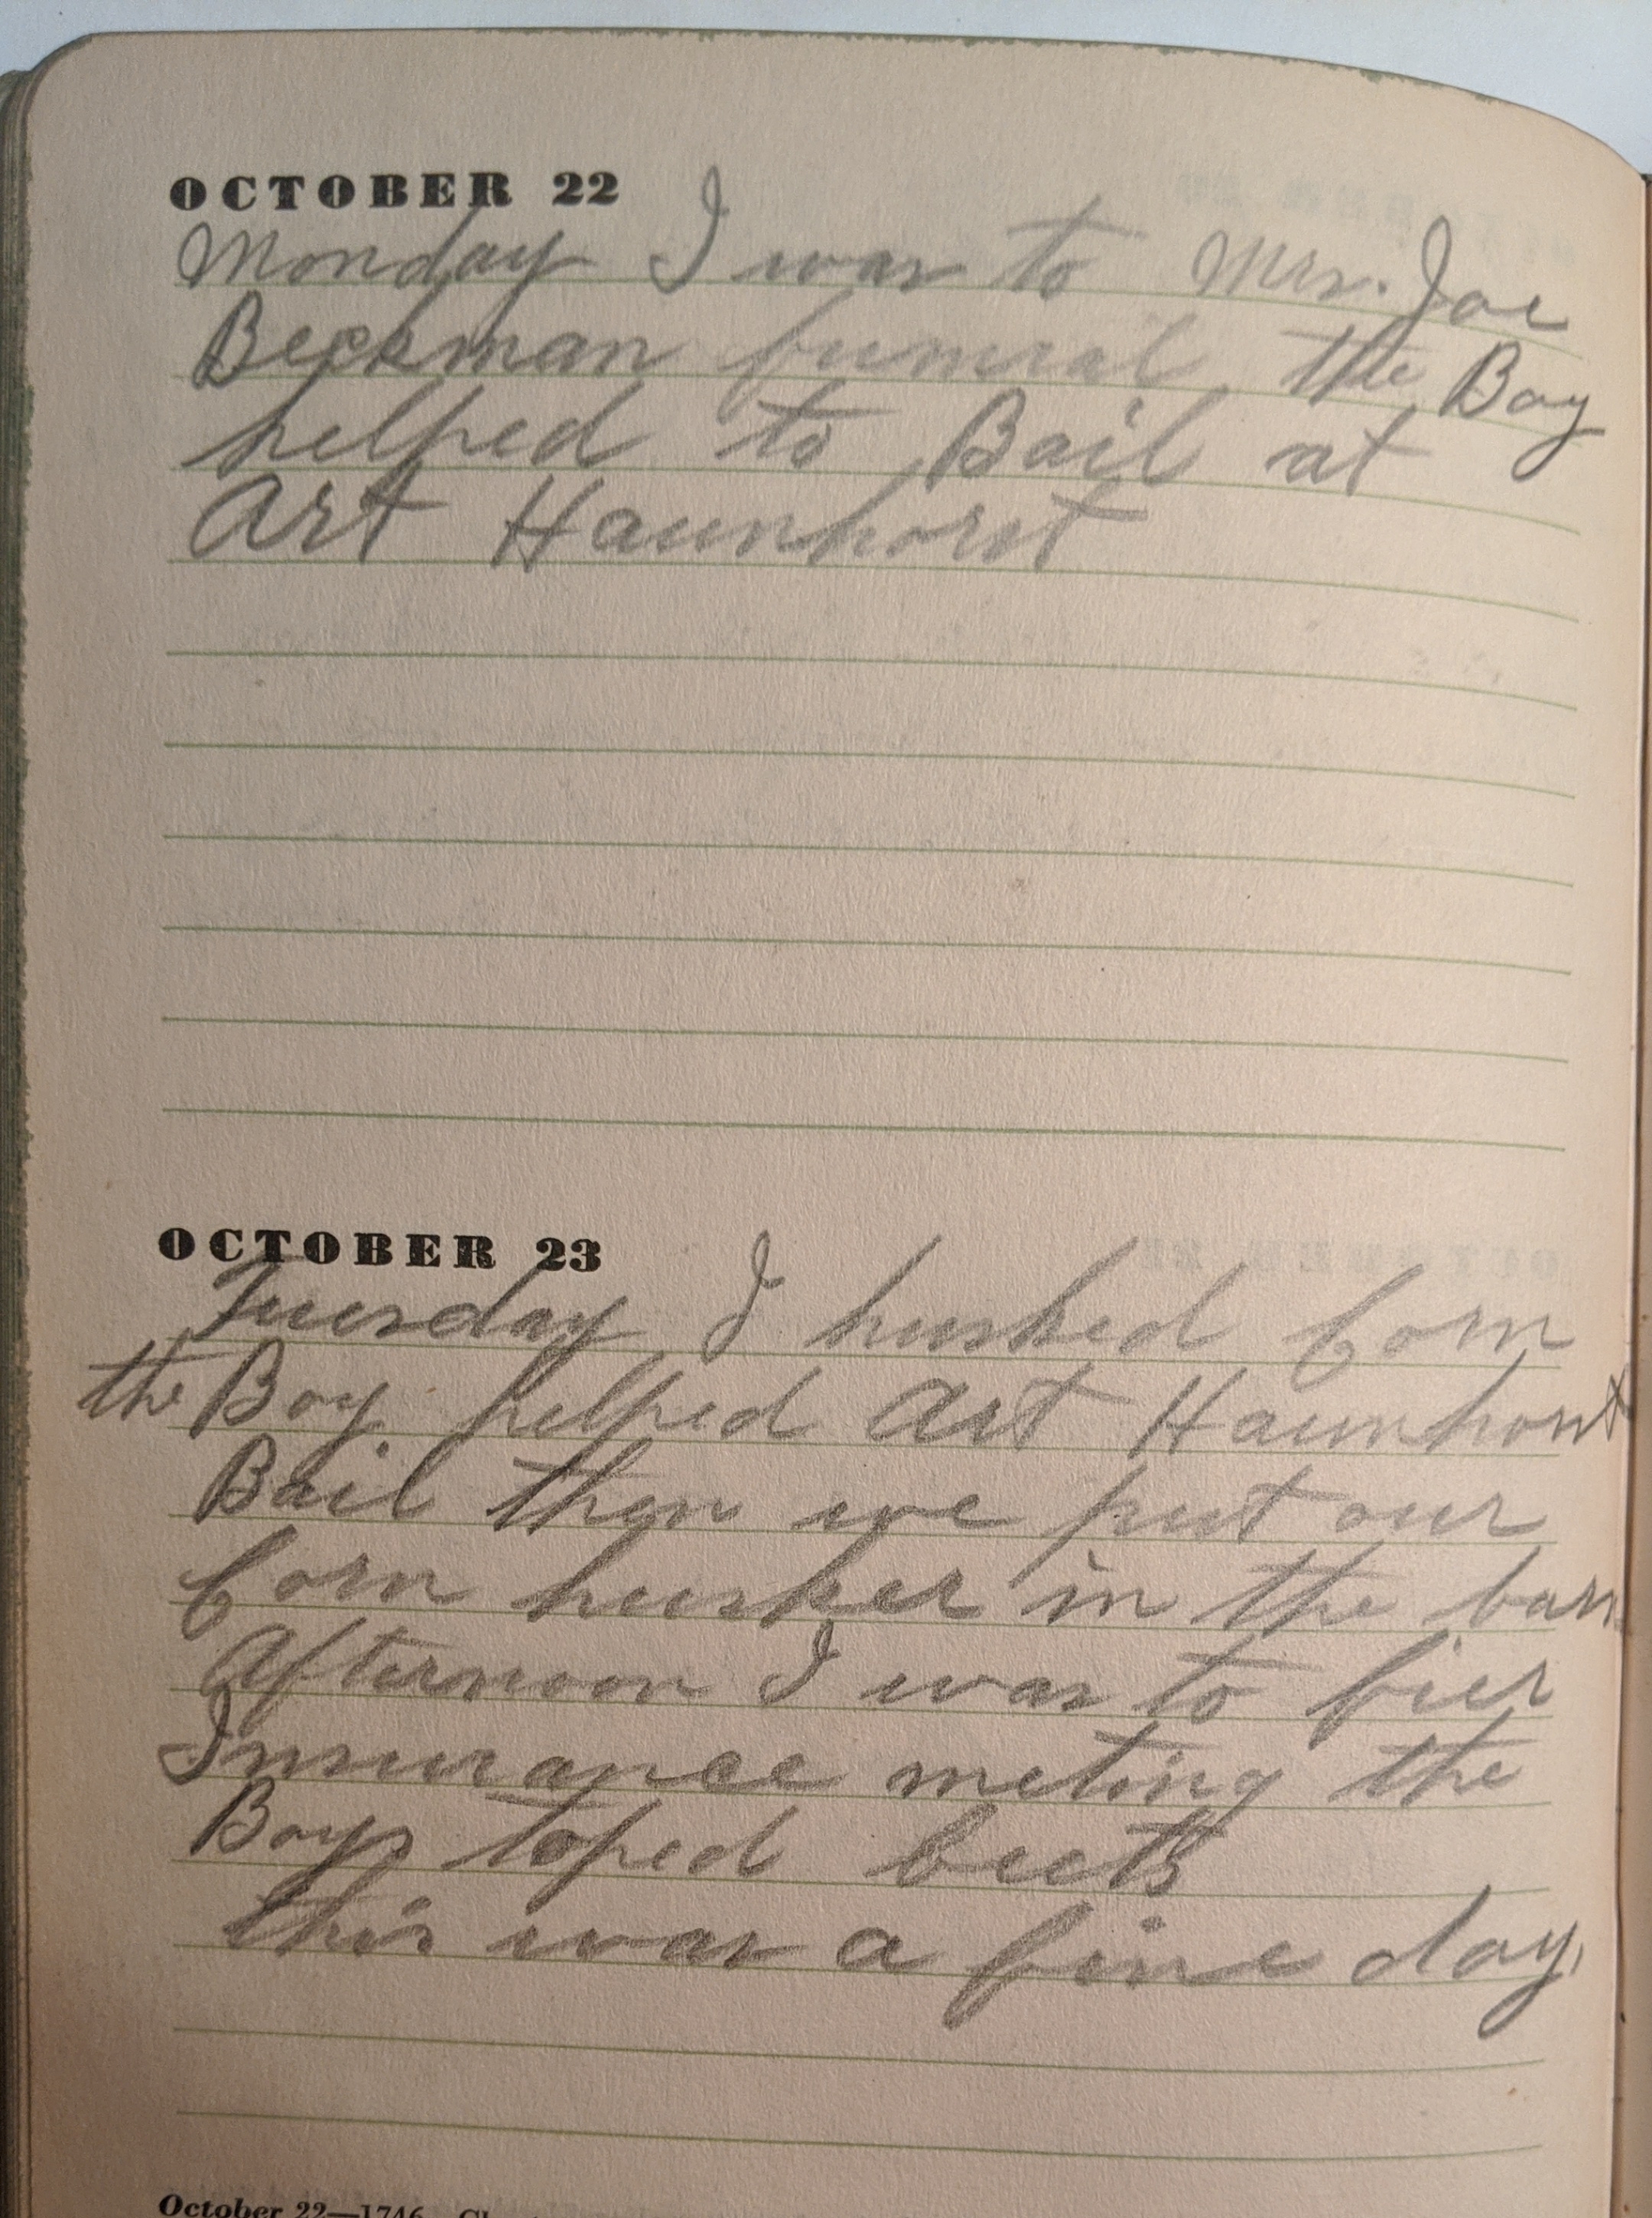 OCTOBER 22
Monday I was to Mrs. Joe
Beckman funeral, the Boy
helped to Bail at
Art Haunhorst
OCTOBER 23
Tuesday I husked Corn
the Boy helped Art Haunhorst
Bail then we put our
Corn husker in the barn
Afternoon I was to fier
Insurance meting the
Boys toped beets
this was a fine day,
October 22—1746